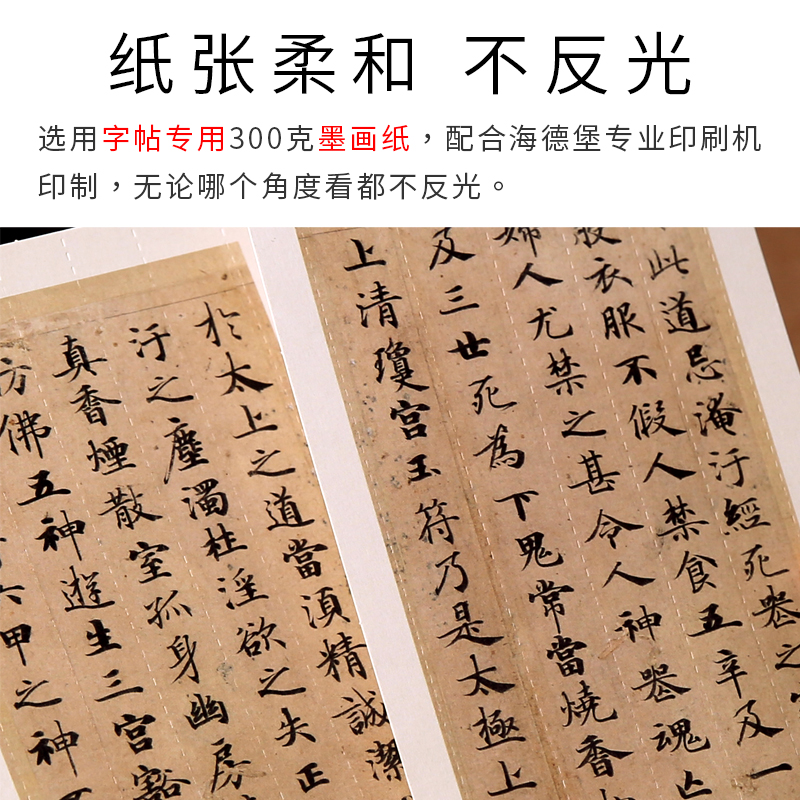 纸张柔和 不反光
选用字帖专用300克墨画纸，配合海德堡专业印刷机
印制，无论哪个角度看都不反光。
此道忌淹汙經死喪之
衣服不假人禁食五辛及一
婦人尤禁之甚令人神喪魂亡
及三世死為下鬼常當燒香
上清瓊宮玉符乃是太極上
於太上之道當須精誠潔
汙之塵濁杜淫欲之失正
真香煙散室孤身幽房
彷佛五神遊生三宮豁
六甲之神